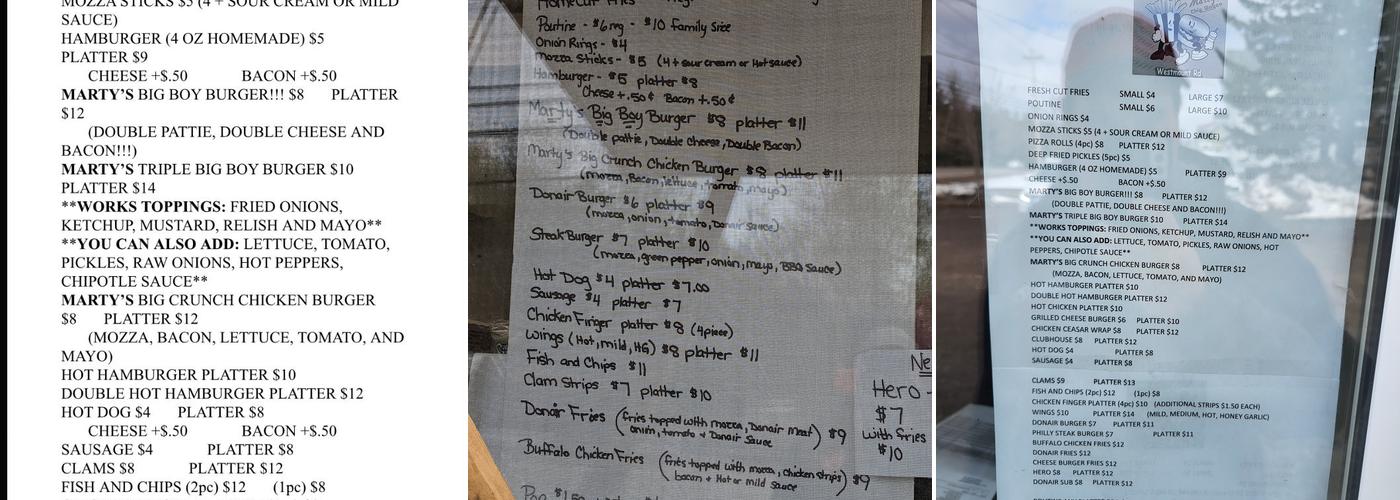 MOZZA STICKS $5 (4 + SOUR CREAM OR MILD
SAUCE)
HAMBURGER (4 OZ HOMEMADE) $5
PLATTER $9
CHEESE +$.50 BACON +$.50
MARTY'S BIG BOY BURGER!!! $8 PLATTER
$12
(DOUBLE PATTIE, DOUBLE CHEESE AND
BACON!!!)
MARTY'S TRIPLE BIG BOY BURGER $10
PLATTER $14
**WORKS TOPPINGS: FRIED ONIONS,
KETCHUP, MUSTARD, RELISH AND MAYO**
**YOU CAN ALSO ADD: LETTUCE, TOMATO,
PICKLES, RAW ONIONS, HOT PEPPERS,
CHIPOTLE SAUCE**
MARTY'S BIG CRUNCH CHICKEN BURGER
$8 PLATTER $12
(MOZZA, BACON, LETTUCE, TOMATO, AND
MAYO)
HOT HAMBURGER PLATTER $10
DOUBLE HOT HAMBURGER PLATTER $12
HOT DOG $4 PLATTER $8
CHEESE +$.50 BACON +$.50
SAUSAGE $4 PLATTER $8
CLAMS $8 PLATTER $12
FISH AND CHIPS (2pc) $12 (1pc) $8
Homecut Fries
Poutine - $6 reg - $10 Family Size
Onion Rings - $4
Mozza Sticks - $5 (4 + sour cream or Hot sauce)
Hamburger - $5 platter $8
Cheese +.50¢ Bacon +.50¢
Marty's Big Boy Burger $8 platter $11
(Double pattie, Double Cheese, Double Bacon)
Marty's Big Crunch Chicken Burger $8 platter $11
(mozza, Bacon, lettuce, tomato, mayo)
Donair Burger $6 platter $9
(mozza, onion, tomato, Donair sauce)
Steak Burger $7 platter $10
(mozza, green pepper, onion, mayo, BBQ Sauce)
Hot Dog $4 platter $7.00
Sausage $4 platter $7
Chicken Finger platter $8 (4 piece)
Wings (Hot, mild, HG) $8 platter $11
Fish and Chips $11
Clam Strips $7 platter $10
Donair Fries (fries topped with mozza, Donair meat, onion, tomato + Donair Sauce) $9
Buffalo Chicken Fries (fries topped with mozza, chicken strips, bacon + Hot or mild sauce) $9
Pop $1.50
Ne
Hero -
$7
with fries
$10
Westmount Rd
FRESH CUT FRIES SMALL $4 LARGE $7
POUTINE SMALL $6 LARGE $10
ONION RINGS $4
MOZZA STICKS $5 (4 + SOUR CREAM OR MILD SAUCE)
PIZZA ROLLS (4pc) $8 PLATTER $12
DEEP FRIED PICKLES (5pc) $5
HAMBURGER (4 OZ HOMEMADE) $5 PLATTER $9
CHEESE +$.50 BACON +$.50
MARTY'S BIG BOY BURGER!!! $8 PLATTER $12
(DOUBLE PATTIE, DOUBLE CHEESE AND BACON!!!)
MARTY'S TRIPLE BIG BOY BURGER $10 PLATTER $14
**WORKS TOPPINGS: FRIED ONIONS, KETCHUP, MUSTARD, RELISH AND MAYO**
**YOU CAN ALSO ADD: LETTUCE, TOMATO, PICKLES, RAW ONIONS, HOT
PEPPERS, CHIPOTLE SAUCE**
MARTY'S BIG CRUNCH CHICKEN BURGER $8 PLATTER $12
(MOZZA, BACON, LETTUCE, TOMATO, AND MAYO)
HOT HAMBURGER PLATTER $10
DOUBLE HOT HAMBURGER PLATTER $12
HOT CHICKEN PLATTER $10
GRILLED CHEESE BURGER $6 PLATTER $10
CHICKEN CEASAR WRAP $8 PLATTER $12
CLUBHOUSE $8 PLATTER $12
HOT DOG $4 PLATTER $8
SAUSAGE $4 PLATTER $8
CLAMS $9 PLATTER $13
FISH AND CHIPS (2pc) $12 (1pc) $8
CHICKEN FINGER PLATTER (4pc) $10 (ADDITIONAL STRIPS $1.50 EACH)
WINGS $10 PLATTER $14 (MILD, MEDIUM, HOT, HONEY GARLIC)
DONAIR BURGER $7 PLATTER $11
PHILLY STEAK BURGER $7 PLATTER $11
BUFFALO CHICKEN FRIES $12
DONAIR FRIES $12
CHEESE BURGER FRIES $12
HERO $8 PLATTER $12
DONAIR SUB $8 PLATTER $12